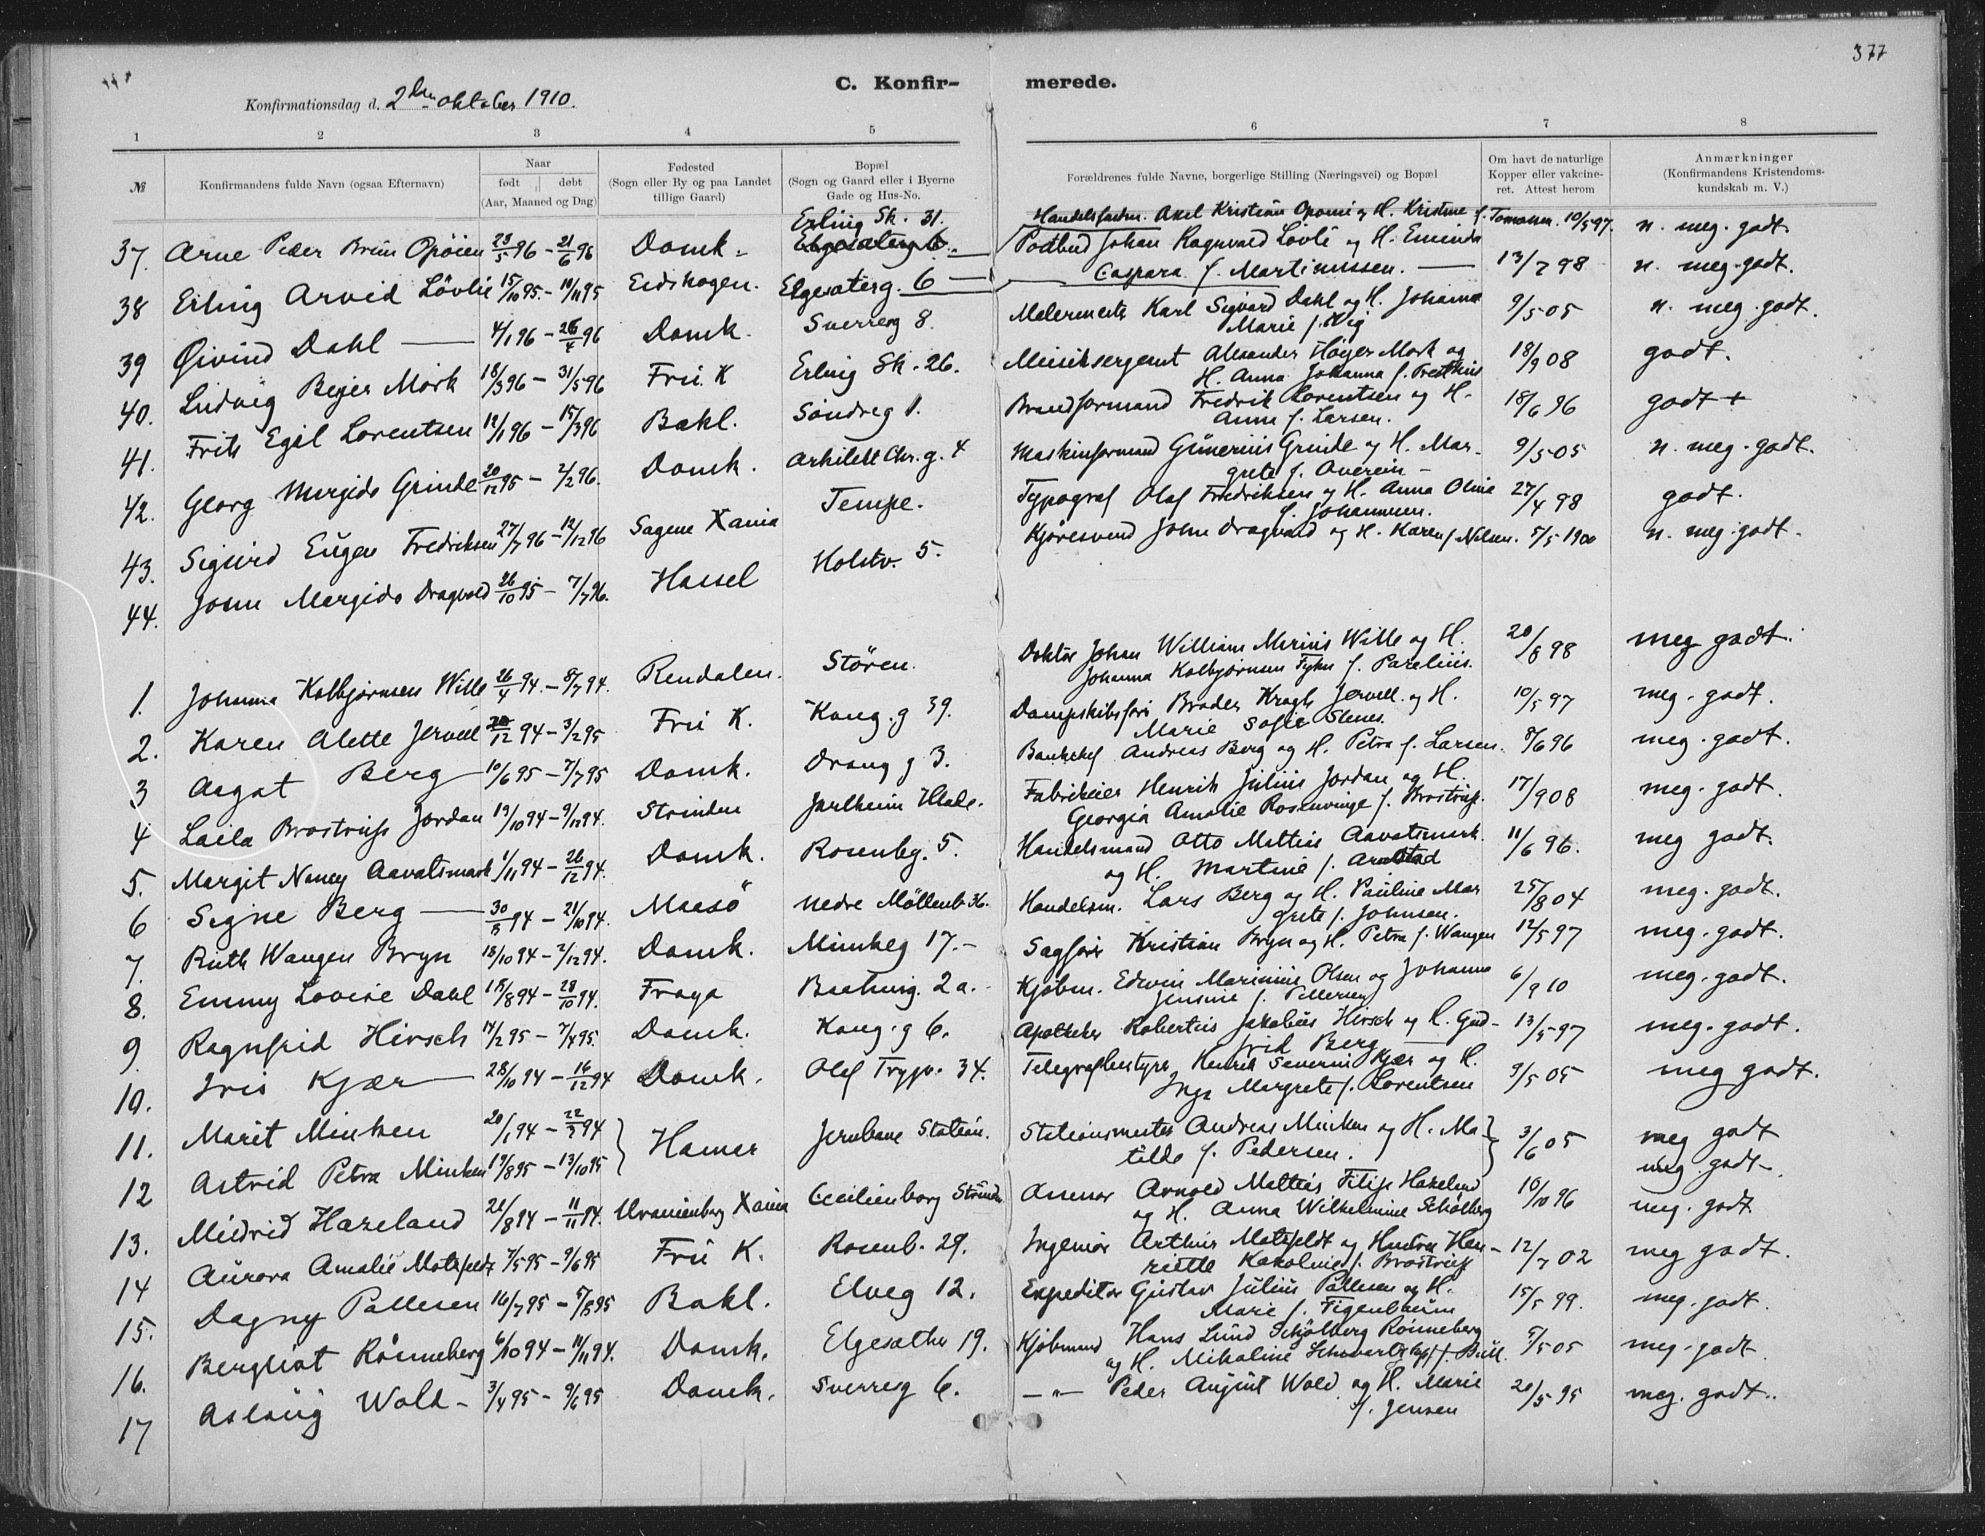 377
C. Konfir-
merede.
Konfirmationsdag d. 2den oktober 1910.
1 2 3 4 5 6 7 8
№
Konfirmandens fulde Navn (ogsaa Efternavn)
Naar
født døbt
(Aar, Maaned og Dag)
Fødested
(Sogn eller By og paa Landet
tillige Gaard)
Bopæl
(Sogn og Gaard eller i Byerne
Gade og Hus-No.
Forældrenes fulde Navne, borgerlige Stilling (Næringsvei) og Bopæl
Om havt de naturlige
Kopper eller vaccine-
ret. Attest herom
Anmærkninger
(Konfirmandens Kristendoms-
kundskab m. V.)
Erling Sk. 31.
Kristian og H. Kristine f. 10/5 97. n. meg. godt.
37. Arne Peder Bruun Opöien 23/5 96 - 21/6 96 Domk.
Postbud Johan Ragnvald Lövli og H.
Caspara f. Martinussen. 13/7 98 n. meg. godt.
38 Erling Arvid Lövlie 15/10 95. - 10/11 95 Eidskogen. Elgesæterg. 6
Malermester Karl Sigvard Dahl og H. Johanna
Marie f. Wig 9/5 05 n. meg. godt.
39 Øivind Dahl 4/1 96 - 26/4 96 Domk. Sverresg 8.
Musiksergeant Alexander Höyer Mørk og
H. Anna Johanna f. 18/9 08 godt.
40. Ludvig Beyer Mørk 18/3 96 - 31/5 96 Frü K Erling Sk. 26.
Brandformand Fredrik Lorentsen og H.
Anna f. Larsen. 18/6 96 godt +
41. Frits Egil Lorentsen 12/1 96 - 15/3 96 Bakl. Söndreg 1.
Maskinformand Gunerius Grinde og H. Mar-
grete f. 9/5 05 n. meg. godt.
42. Georg Margido Grinde 20/12 95 - 2/2 96. Domk. Arkitekt Chr. g. 4
Typograf Olaf Fredriksen og H. Anna Oline
f. Johannesen. 27/4 98 godt.
43. Sigurd Eugen Fredriksen 27/7 96 - 12/12 96 Sagene Xania Tempe.
Kjøresvend John Dragvold og H. Karen f. Nilsen. 5/5 1900 n. meg. godt.
44. John Margido Dragvold 26/10 95 - 7/7 96. Hassel Holstv. 5.
Doktor Johan William Marius Wille og H.
Johanna Kolbjørnsen f. Parelius. 20/8 98 meg godt.
1. Johanna Kolbjørnsen Wille 26/4 94. - 8/7 94. Rendalen. Stören.
Dampskibsfører Broder Kragh Jervell og H.
Marie Sofie 10/5 97 meg. godt.
2. Karen Alette Jervell 20/12 94 - 3/2 95 Frü K. Kong. g 39.
Andreas Berg og H. Petra f. Larsen. 8/6 96 meg. godt.
3 Aagot Berg 10/6 95 - 7/7 95 Domk. Drong g 3.
Fabrikeier Henrik Julius Jordan og H.
Georgia Amalie Rosenvinge f. Brostrup. 17/9 08 meg. godt.
4 Laila Brostrup Jordan 19/10 94 - 9/12 94. Strinden Jarlheim Hlade.
Handelsmand Otto Mattias Aavatsmark
og H. Martine f. 11/6 96. meg godt.
5. Margit Nancy Aavatsmark 1/11 94 - 26/12 94. Domk. Rosenbg. 5.
Handelsm. Lars Berg og H. Pauline Mar
grete f. Johnsen. 25/8 04 meg. godt.
6 Signe Berg 30/8 94 - 21/10 94. Maasö Nedre Möllenb. 36.
Sagfører Kristian Bryn og H. Petra f. Wangen 12/5 97 meg. godt.
7. Ruth Wangen Bryn 18/10 94 - 2/12 94. Domk. Munkeg 17.
Kjøbm. Edvin Marinius Olsen og Johanna
Jensine f. 6/9 10 meg. godt.
8. Emmy Lovise Dahl 15/8 94 - 28/10 94. Frøya 2a.
Apotheker Robertus Jakobus Hirsch og H. Gud-
frid Berg 13/5 97 meg. godt.
9. Ragnfrid Hirsch 14/2 95 - 7/4 95. Domk. Kong. g 6.
Telegrafbestyrer Henrik Severin Kjær og H.
Inga Margrete f. Lorentsen 3/5 05 meg godt.
10. Iris Kjær 28/10 94 - 16/12 94 Domk. Olaf Trygv. 34.
Stationsmester Andreas Minken og H. Ma-
tilde f. Pedersen. 3/6 05 meg godt
11. Marit Minken 20/1 94 - 22/3 94 Hamar Jernbane Station.
meg. godt
12 Astrid Petra Minken 19/8 95 - 13/10 95
Arnold Mattias Filip Hazeland
og H. Anna Wilhelmine Schølberg 10/10 96 meg. godt
13. Mildrid Hazeland 21/8 94 - 11/11 94. Uranienborg Xania Cecilienborg Strinden
Ingeniör Arthur Motzfeldt og Hustru Hen-
riette f. Brostrup 12/7 02 meg godt.
14 Aurora Amalie Motzfeldt 7/5 95 - 9/6 95 Frü K. Rosenb. 29.
Expeditör Gustav Julius Pallesen og H.
Marie f. Figenbaum 15/5 99. meg. godt.
15. Dagny Pallesen 16/7 95 - 5/8 95 Bakl. Elveg 12.
Kjöbmand Hans Lund Schjølberg Rönneberg
og H. Mikaline f. Bull. 5/5 05 meg. godt.
16. Bergliot Rönneberg 6/10 94 - 11/11 94. Domk. Elgesæther 19.
— " — Peder August Wold og H. Marie
f. Jensen 20/5 95 meg. godt.
17 Aslaug Wold - 3/4 95 - 9/6 95 Domk. Sverresg 6.